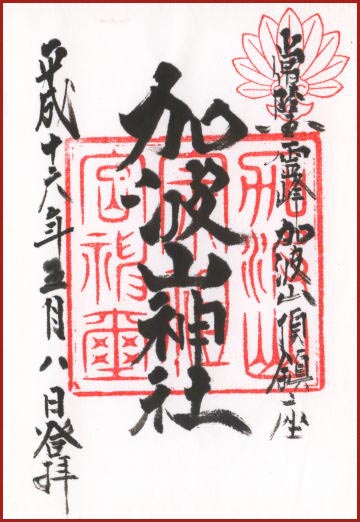 常陸霊峰加波山頂鎮座
加波山神社
平成十六年五月八日登拝
加波山
宮神璽